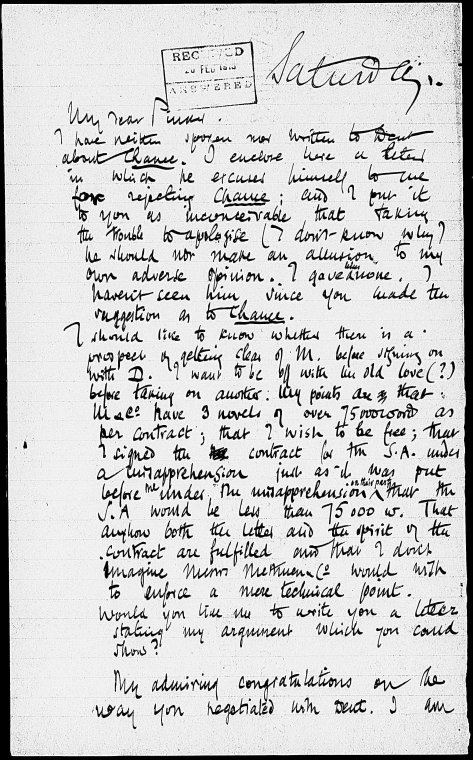 RECEIVED
20 FEB 1913
ANSWERED
Saturday.
My dear Pinker.
I have neither spoken nor written to Dent
about Chance. I enclose here a letter
in which he excuses himself to me
for rejecting Chance; and I put it
to you as inconceivable that taking
the trouble to apologise (I don't know why?)
he should not make an allusion to my
own adverse opinion. I gave him none. I
haven't seen him since you made the
suggestion as to Chance.
I should like to know whether there is a
prospect of getting clear of M. before signing on
with D. I want to be off with the old love (?)
before taking on another. My points are that:
M & Co have 3 novels of over 75000 words as
per contract; that I wish to be free; that
I signed the contract for the S.A. under
a misapprehension just as it was put
before me under the misapprehension on their part that the
S.A would be less than 75000 w. That
anyhow both the letter and the spirit of the
contract are fulfilled and that I don't
imagine Messrs Methuen & Co would wish
to enforce a mere technical point.
Would you like me to write you a letter
stating my argument which you could
show?
My admiring congratulations on the
way you negotiated with Dent. I am